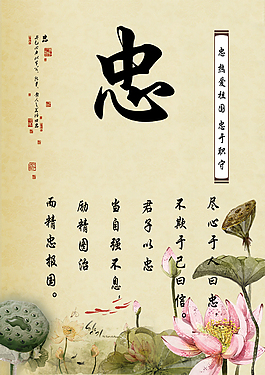 忠 热爱祖国 忠于职守
忠
尽心于人曰忠
不欺于己曰信。
君子以忠
当自强不息
励精图治
而精忠报国。
忠